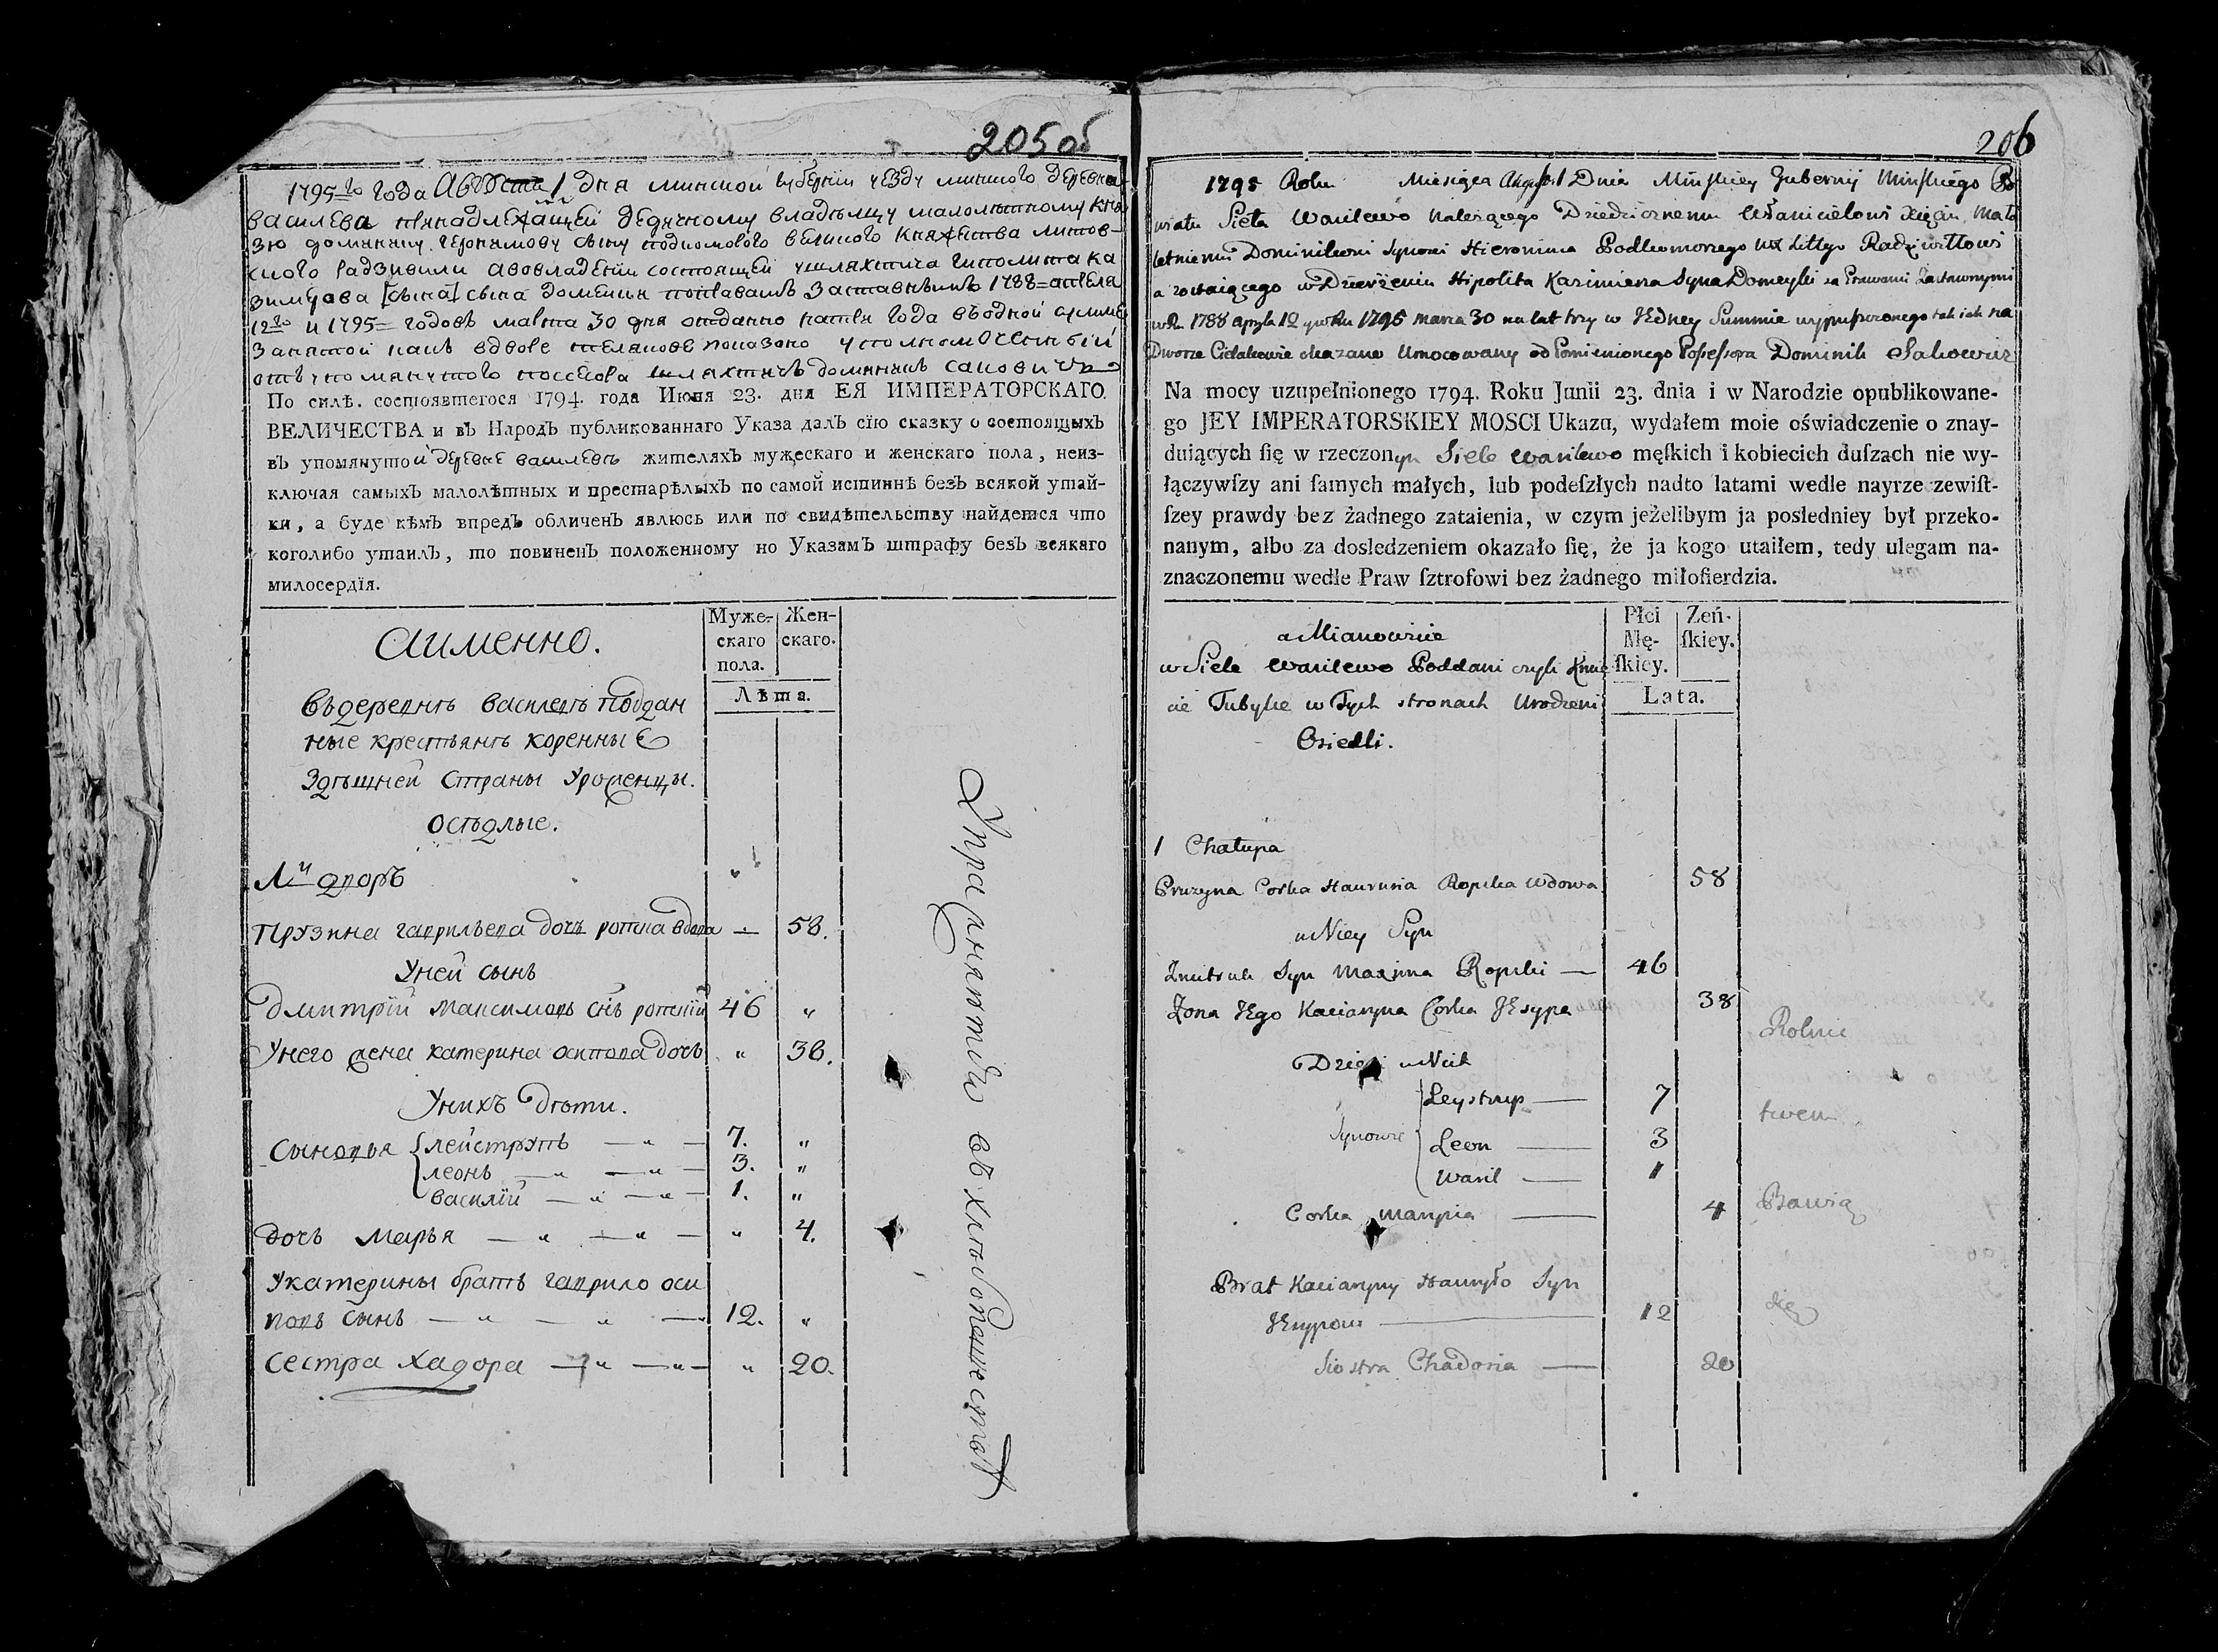 205 об
1795го года Августа 1 дня минской губернии уезду минского деревня
василева принадлежащей дедичному владельцу малолетному кня
зю доминику геронимову сыну подкоморого великого княжества литов-
ского радзивили а во владении состоящей у шляхтича гиполита ка
зимирова [сына] сына домейки по правамъ заставнымъ 1788 = апреля
12го и 1795 = годовъ марта 30 дня отданно на три года въ одной сумме
занятой какъ в дворе показано уполномоченный
отъ упомянутого посесора шляхтичь доминикъ саковичъ
По силѣ. состоявшегося 1794. года Июня 23. дня ЕЯ ИМПЕРАТОРСКАГО
ВЕЛИЧЕСТВА и въ Народъ публикованнаго Указа далъ сїю сказку о состоящыхъ
въ упомянутой деревне василевѣ жителяхъ мужескаго и женскаго пола, неиз-
ключая самыхъ малолѣтных и престарѣлыхъ по самой истиннѣ безъ всякой утай-
ки, а буде кѣмъ впредъ обличенъ явлюсь или по свидѣтельству найдется что
коголибо утаилъ, то повиненъ положенному по Указамъ штрафу безъ всякаго
милосердїя.
Аименно.
Муже-
скаго
пола.
Жен-
скаго.
Лѣта.
въ деревнѣ василевѣ поддан
ные крестьянѣ коренные
здѣшней страны уроженцы.
осѣдлые.
1й дворъ
Прузина гаврильева дочь ропска вдова — 58.
У ней сынъ
Дмитрїй Максимовъ снъ ропскїй 46 "
У него жена катерина осипова дочь " 38.
У нихъ дѣти.
сыновья { лейструпъ — " — 7. "
леонъ — " — " — 3. "
василїй — " — " — 1. "
дочь марья — " — " — " 4.
У катерины братъ гаврило оси
повъ сынъ — " — " — " 12. "
сестра хадора — " — " — " 20.
Упражняются въ хлѣбопашествѣ
206
1795 Roku Miesiąca Augusti 1 Dnia Mińskiey Gubernij Mińskiego Po
wiatu Sieła Wasilewo należącego Dziedzicznemu Właścicielowi Xięciu Mało
letniemu Dominikowi Synowi Hieronima Podkomorzego WX Littgo Radziwiłłowi
a zostaiącego w Dzierżeniu Hipolita Kazimierza Syna Domeyki za Prawami Zastawnymi
w Ru 1788 apryla 12 y w Ru 1795 marca 30 na lat trzy w Jedney Summie wypuszczonego tak iak na
Dworze okazano Umocowany od Pomienionego Possessora Dominik Sakowicz
Na mocy uzupełnionego 1794. Roku Junii 23. dnia i w Narodzie opublikowane-
go JEY IMPERATORSKIEY MOSCI Ukazu, wydałem moie oświadczenie o znay-
duiących ſię w rzeczonym Siele Wasilewo męſkich i kobiecich duſzach nie wy-
łączywſzy ani ſamych małych, lub podeſzłych nadto latami wedle nayrze zewiſt-
ſzey prawdy bez żadnego zataienia, w czym jeżelibym ja posledniey był przeko-
nanym, albo za dosledzeniem okazało ſię, że ja kogo utaiłem, tedy ulegam na-
znaczonemu wedle Praw ſztrofowi bez żadnego miłoſierdzia.
a Mianowicie
Płci
Mę-
ſkiey.
Zeń-
ſkiey.
Lata.
w Siele Wasilewo Poddani czyli Kmie
cie Tubylce w Tych stronach Urodzeni
Osiedli.
1 Chałupa
Pruzyna Corka Hauryła Ropska Wdowa 58
u Niey Syn
Zmitruk Syn Maxima Ropski — 46
Zona Jego Kaciaryna Corka Jesypa 38
Dzieci u Nich
Synowie { Leystrup — 7
Leon — 3
Wasil — 1
Corka Maryia — 4
Brat Kaciaryny Hauryło Syn
Jesypow — 12
Siostra Chadosia — 20
Rolnic
twem
Bawią
się